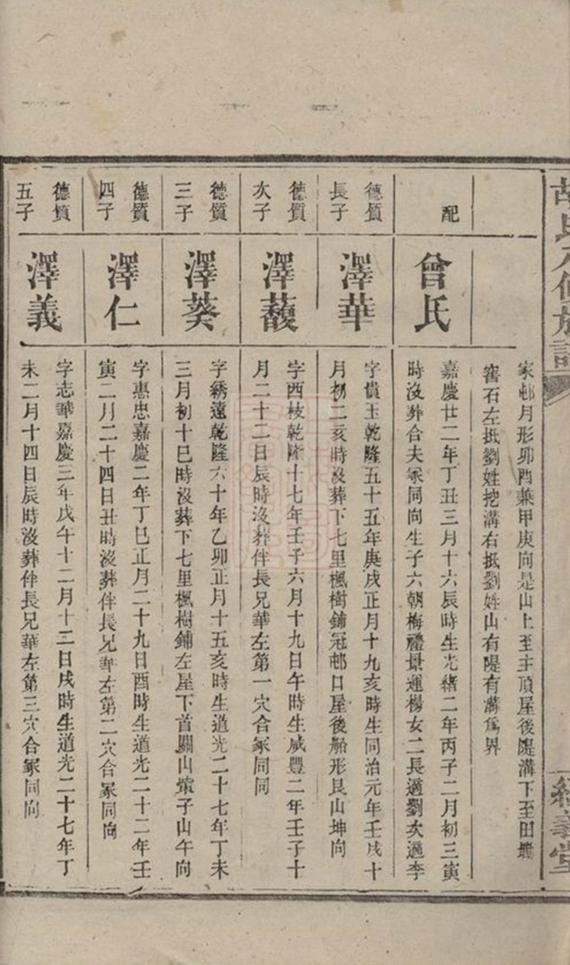 家邨月形卯酉兼甲庚向是山上至主頂屋後隄溝下至田塝
窖石左抵劉姓挖溝右抵劉姓山有隄有溝為界
配
曾氏
嘉慶廿二年丁丑三月十六辰時生光緒二年丙子二月初三寅
時沒葬合夫冢同向生子六朝梅禮景運楊女二長適劉次適李
德質
長子
澤華
字貴玉乾隆五十五年庚戌正月十九亥時生同治元年壬戌十
月初二亥時沒葬下七里楓樹鋪冠邨口屋後船形艮山坤向
德質
次子
澤馥
字西枝乾隆十七年壬子六月十九日午時生咸豐二年壬子十
月二十二日辰時沒葬伴長兄華左第一穴合冢同向
德質
三子
澤葵
字綉遠乾隆六十年乙卯正月十五亥時生道光二十七年丁未
三月初十巳時沒葬下七里楓樹鋪左屋下首關山子山午向
德質
四子
澤仁
字惠忠嘉慶二年丁巳正月二十九日酉時生道光二十二年壬
寅二月二十四日丑時沒葬伴長兄華左第二穴合冢同向
德質
五子
澤義
字志華嘉慶三年戊午十二月十二日戌時生道光二十七年丁
未二月十四日辰時沒葬伴長兄華左第三穴合冢同向